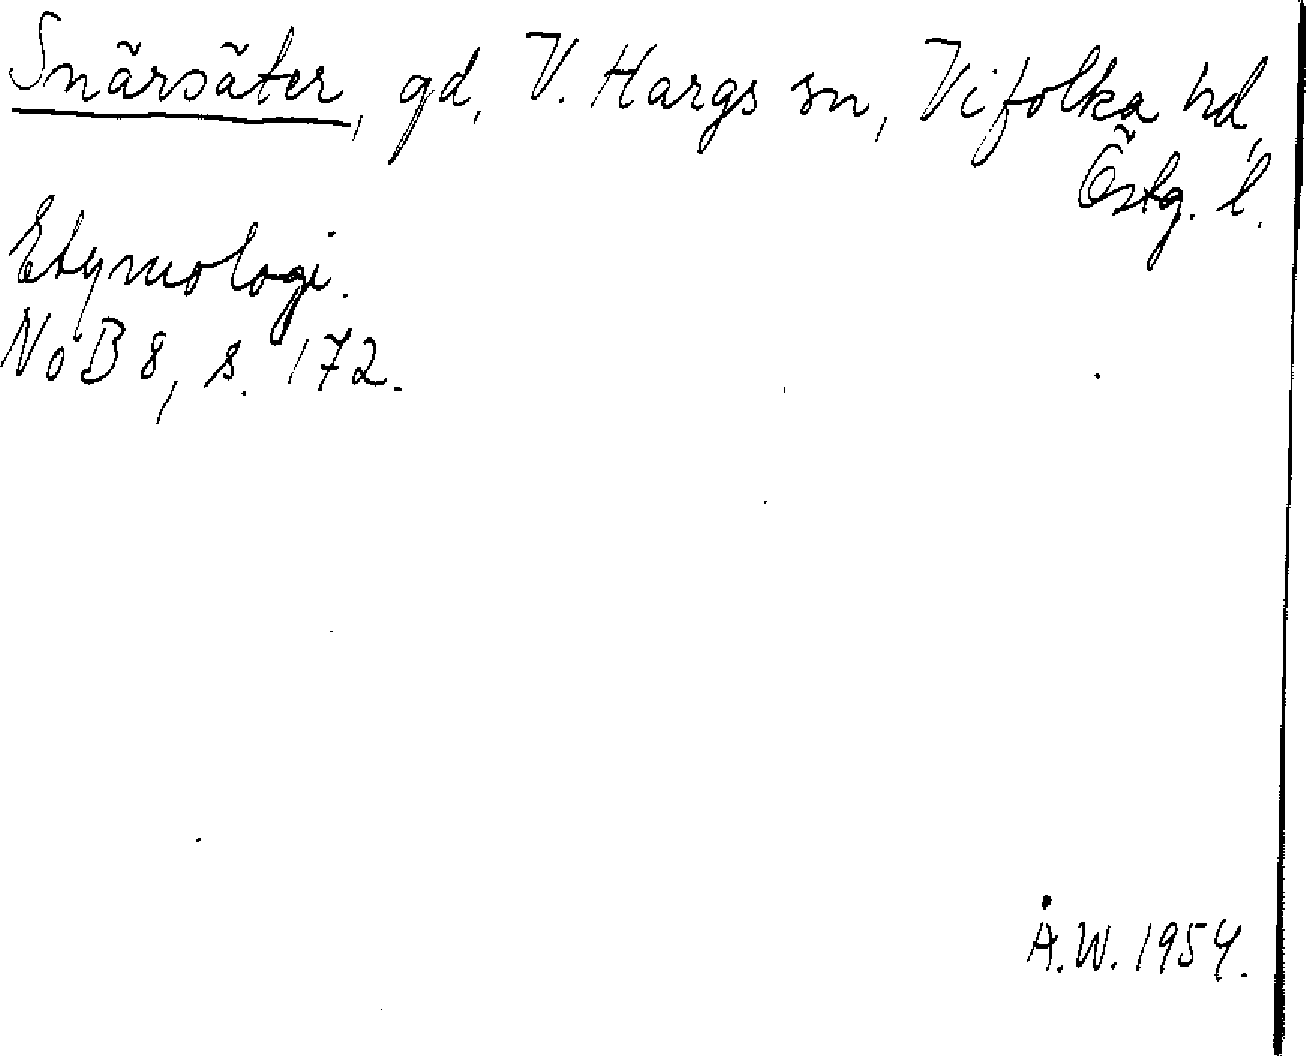 Snärsäter, gd, V. Hargs sn, Vifolka hd,
Östg. l.
Etymologi.
NoB 8, s. 172.
Å.W. 1954.